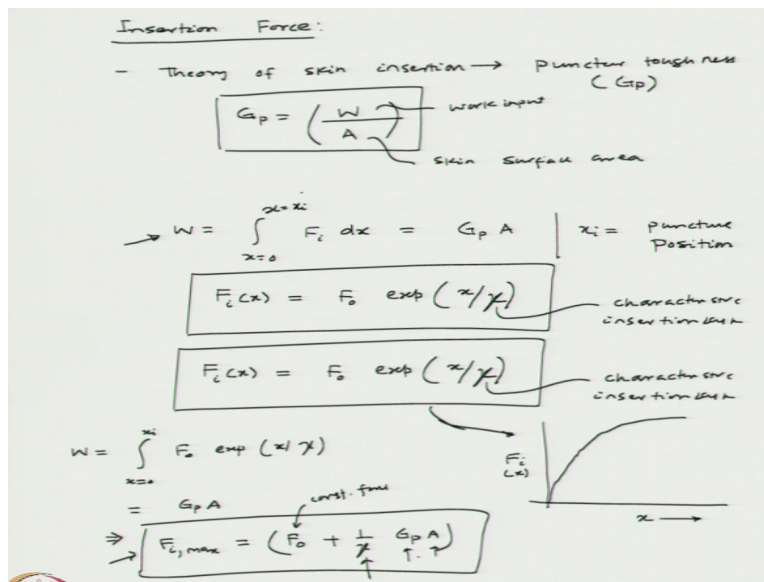 Insertion Force:
- Theory of skin insertion → Puncture toughness
(Gp)
Gp = (W/A) work input
skin surface area
→ W = ∫ x=0 x=xi Fi dx = Gp A | xi = Puncture
Position
Fi(x) = F₀ exp (x/χ)
characteristic
insertion
Fi(x) = F₀ exp (x/χ)
characteristic
insertion
W = ∫ x=0 xi F₀ exp (x/χ)
Fi
(x)
x →
= Gp A
const. force
⇒ Fi,max = (F₀ + 1/χ Gp A)